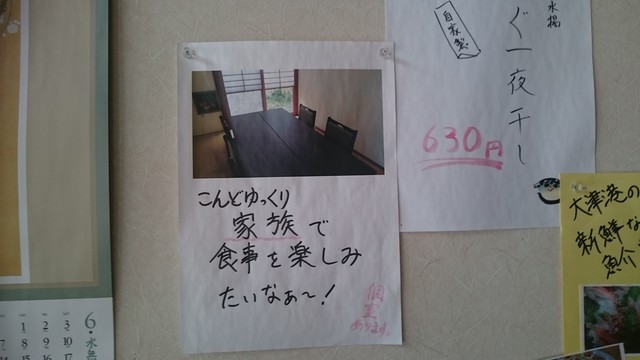 こんどゆっくり
家族で
食事を楽しみ
たいなぁ〜!
個室
あります。
水揚
自家製
ぐ一夜干し
630円
大津港の
新鮮な
魚介
6・水無
1 2 3
8 9 10
15 16 17